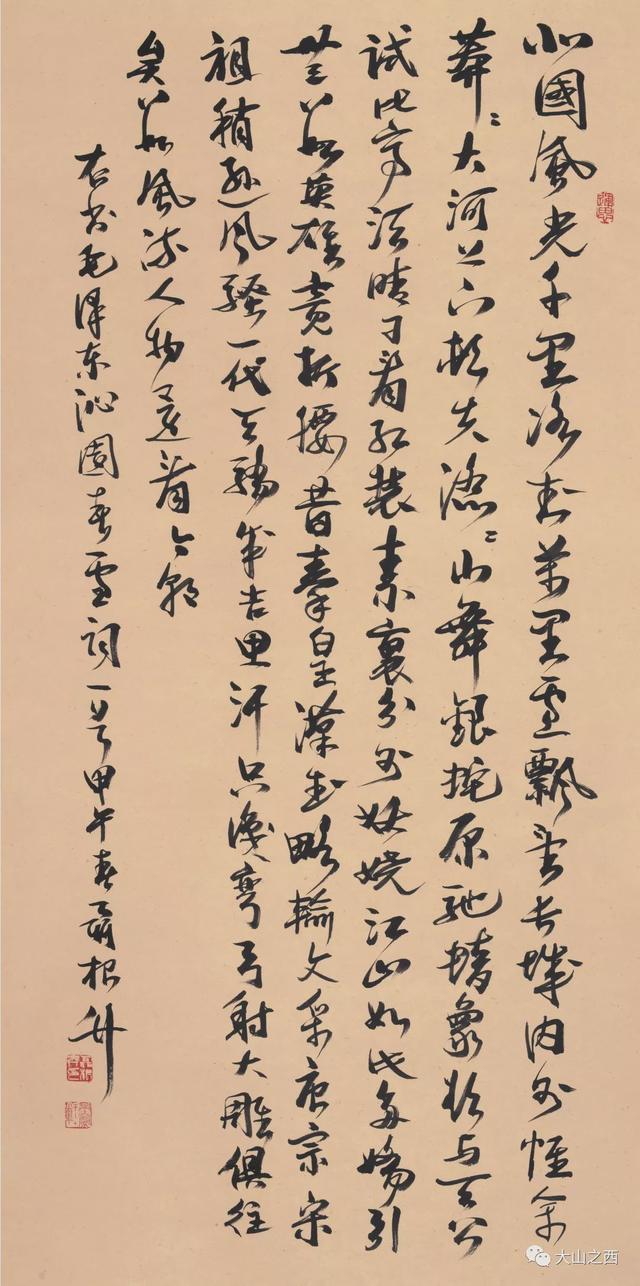 北國風光千里冰封萬里雪飄望長城內外惟余
莽〻大河上下頓失滔〻山舞銀蛇原馳蠟象欲与天公
試比高須晴日看紅裝素裹分外妖嬈江山如此多嬌引
無數英雄竞折腰昔秦皇漢武略輸文采唐宗宋
祖稍遜風騷一代天驕成吉思汗只識彎弓射大雕俱往
矣數風流人物還看今朝
右书毛澤东沁園春雪詞一首甲午春聶根升
大山之西